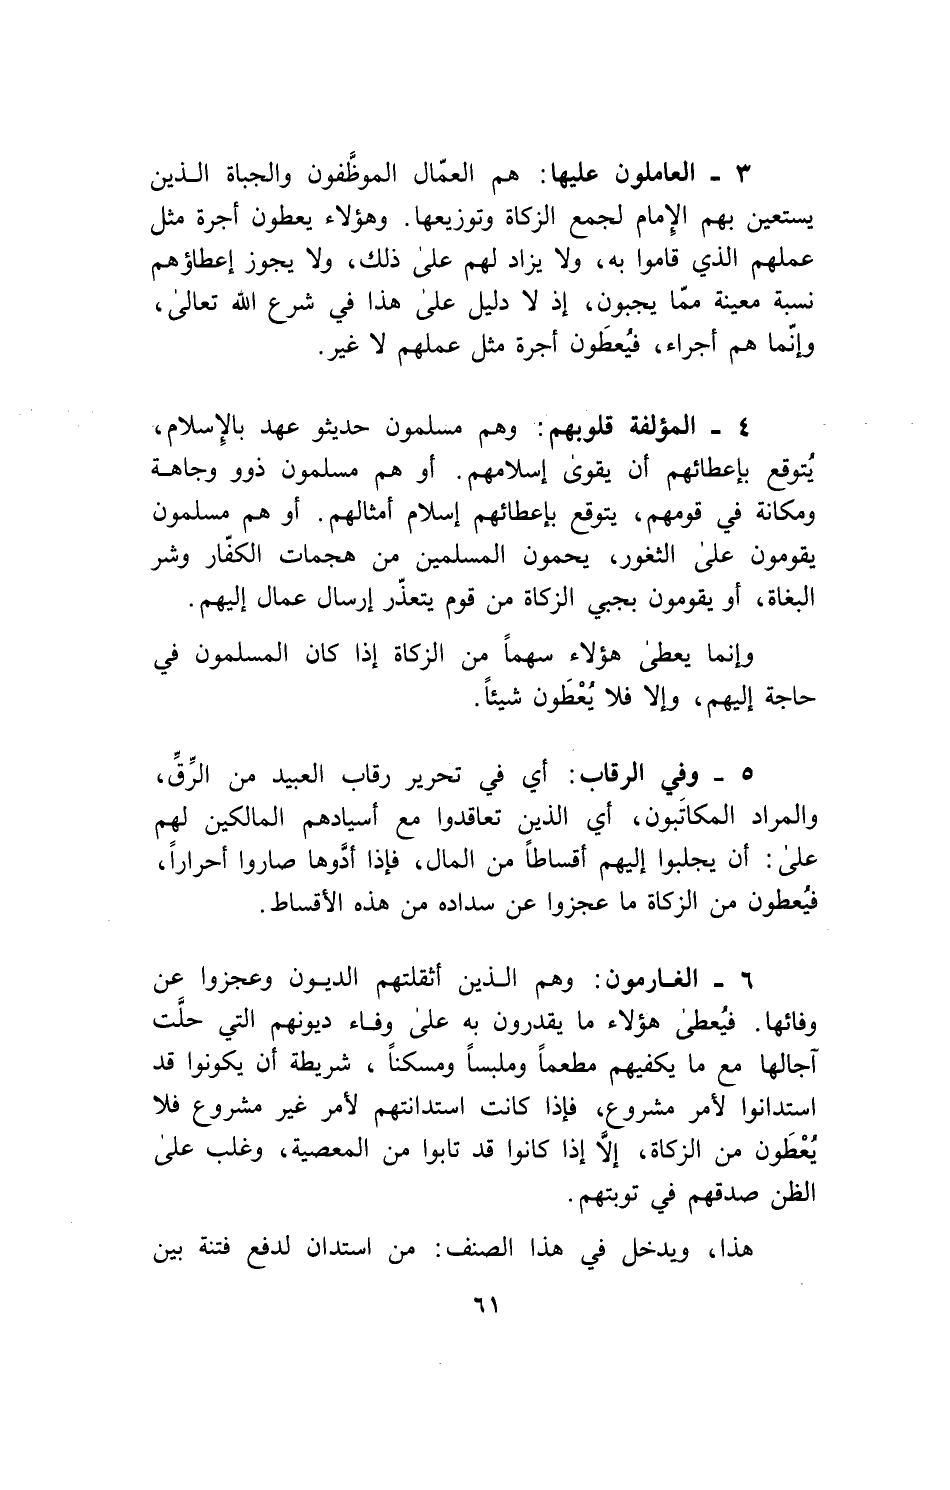 ٣ - العاملون عليها: هم العمّال الموظَّفون والجباة الـذين
يستعين بهم الإمام لجمع الزكاة وتوزيعها. وهؤلاء يعطون أجرة مثل
عملهم الذي قاموا به، ولا يزاد لهم علىٰ ذلك، ولا يجوز إعطاؤهم
نسبة معينة ممّا يجبون، إذ لا دليل علىٰ هذا في شرع الله تعالىٰ،
وإنّما هم أجراء، فيُعطَون أجرة مثل عملهم لا غير.
٤ - المؤلفة قلوبهم: وهم مسلمون حديثو عهد بالإسلام،
يُتوقع بإعطائهم أن يقوىٰ إسلامهم. أو هم مسلمون ذوو وجاهـة
ومكانة في قومهم، يتوقع بإعطائهم إسلام أمثالهم. أو هم مسلمون
يقومون علىٰ الثغور، يحمون المسلمين من هجمات الكفّار وشر
البغاة، أو يقومون بجبي الزكاة من قوم يتعذّر إرسال عمال إليهم.
وإنما يعطىٰ هؤلاء سهماً من الزكاة إذا كان المسلمون في
حاجة إليهم، وإلا فلا يُعْطَون شيئاً.
٥ - وفي الرقاب: أي في تحرير رقاب العبيد من الرِّقِّ،
والمراد المكاتَبون، أي الذين تعاقدوا مع أسيادهم المالكين لهم
علىٰ: أن يجلبوا إليهم أقساطاً من المال، فإذا أدَّوها صاروا أحراراً،
فيُعطون من الزكاة ما عجزوا عن سداده من هذه الأقساط.
٦ - الغـارمون: وهم الـذين أثقلتهم الديـون وعجزوا عن
وفائها. فيُعطىٰ هؤلاء ما يقدرون به علىٰ وفـاء ديونهم التي حلَّت
آجالها مع ما يكفيهم مطعماً وملبساً ومسكناً ، شريطة أن يكونوا قد
استدانوا لأمر مشروع، فإذا كانت استدانتهم لأمر غير مشروع فلا
يُعْطَون من الزكاة، إلاَّ إذا كانوا قد تابوا من المعصية، وغلب علىٰ
الظن صدقهم في توبتهم.
هذا، ويدخل في هذا الصنف: من استدان لدفع فتنة بين
٦١